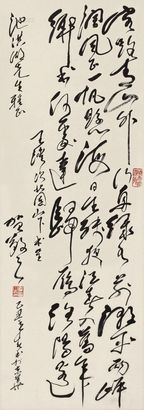 客路青山外行舟綠水前潮平兩岸
闊風正一帆懸海日生殘夜江春入舊年
鄉書何處達歸雁洛陽邊
王灣次北固山下
池洪湖先生雅正
賀敬之
己丑